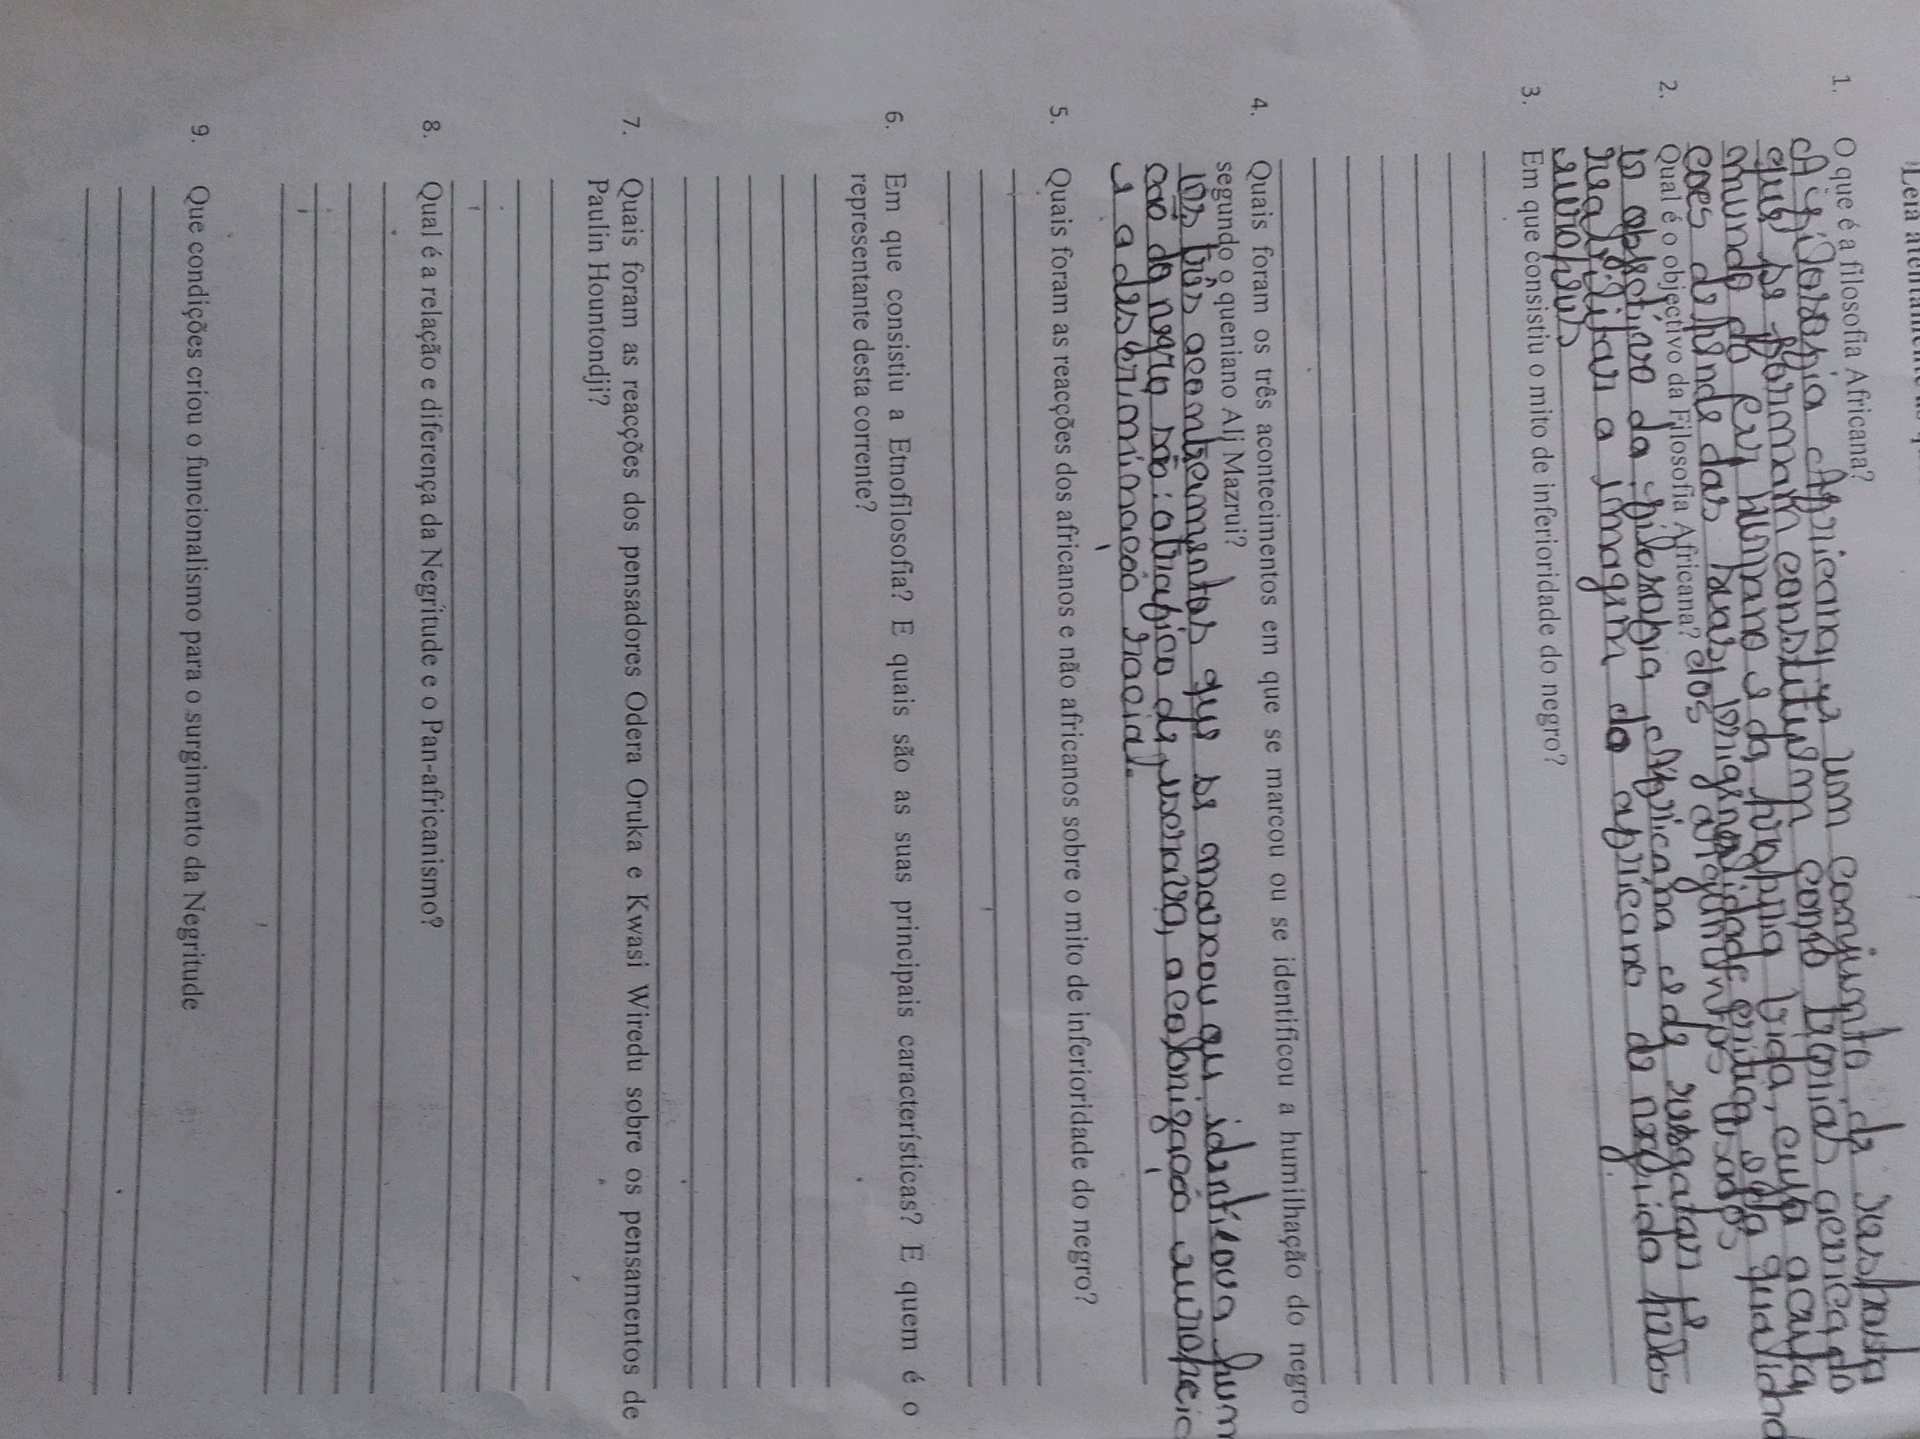 1. O que é a filosofia Africana?
A filosofia Africana, é um conjunto de resposta
que se formam constituem como teorias acerca do
mundo do ser humano e da própria vida, cuja aceita
coes depende das suas originalidade critica e da qualidad
2. Qual é o objectivo da Filosofia Africana? dos argumentos usados
O objectivo da filosofia Africana é de resgatar e
reabilitar a imagem do africano denegrido pelos
europeus
3. Em que consistiu o mito de inferioridade do negro?
4. Quais foram os três acontecimentos em que se marcou ou se identificou a humilhação do negro
segundo o queniano Alj Mazrui?
Os três acontecimentos que se marcou ou identicoua hum
cao do negro são: o trafico de escravo, a colonização europeia
e a descriminação racial.
5. Quais foram as reacções dos africanos e não africanos sobre o mito de inferioridade do negro?
6. Em que consistiu a Etnofilosofia? E quais são as suas principais características? E quem é o
representante desta corrente?
7. Quais foram as reacções dos pensadores Odera Oruka e Kwasi Wiredu sobre os pensamentos de
Paulin Hountondji?
8. Qual é a relação e diferença da Negritude e o Pan-africanismo?
9. Que condições criou o funcionalismo para o surgimento da Negritude